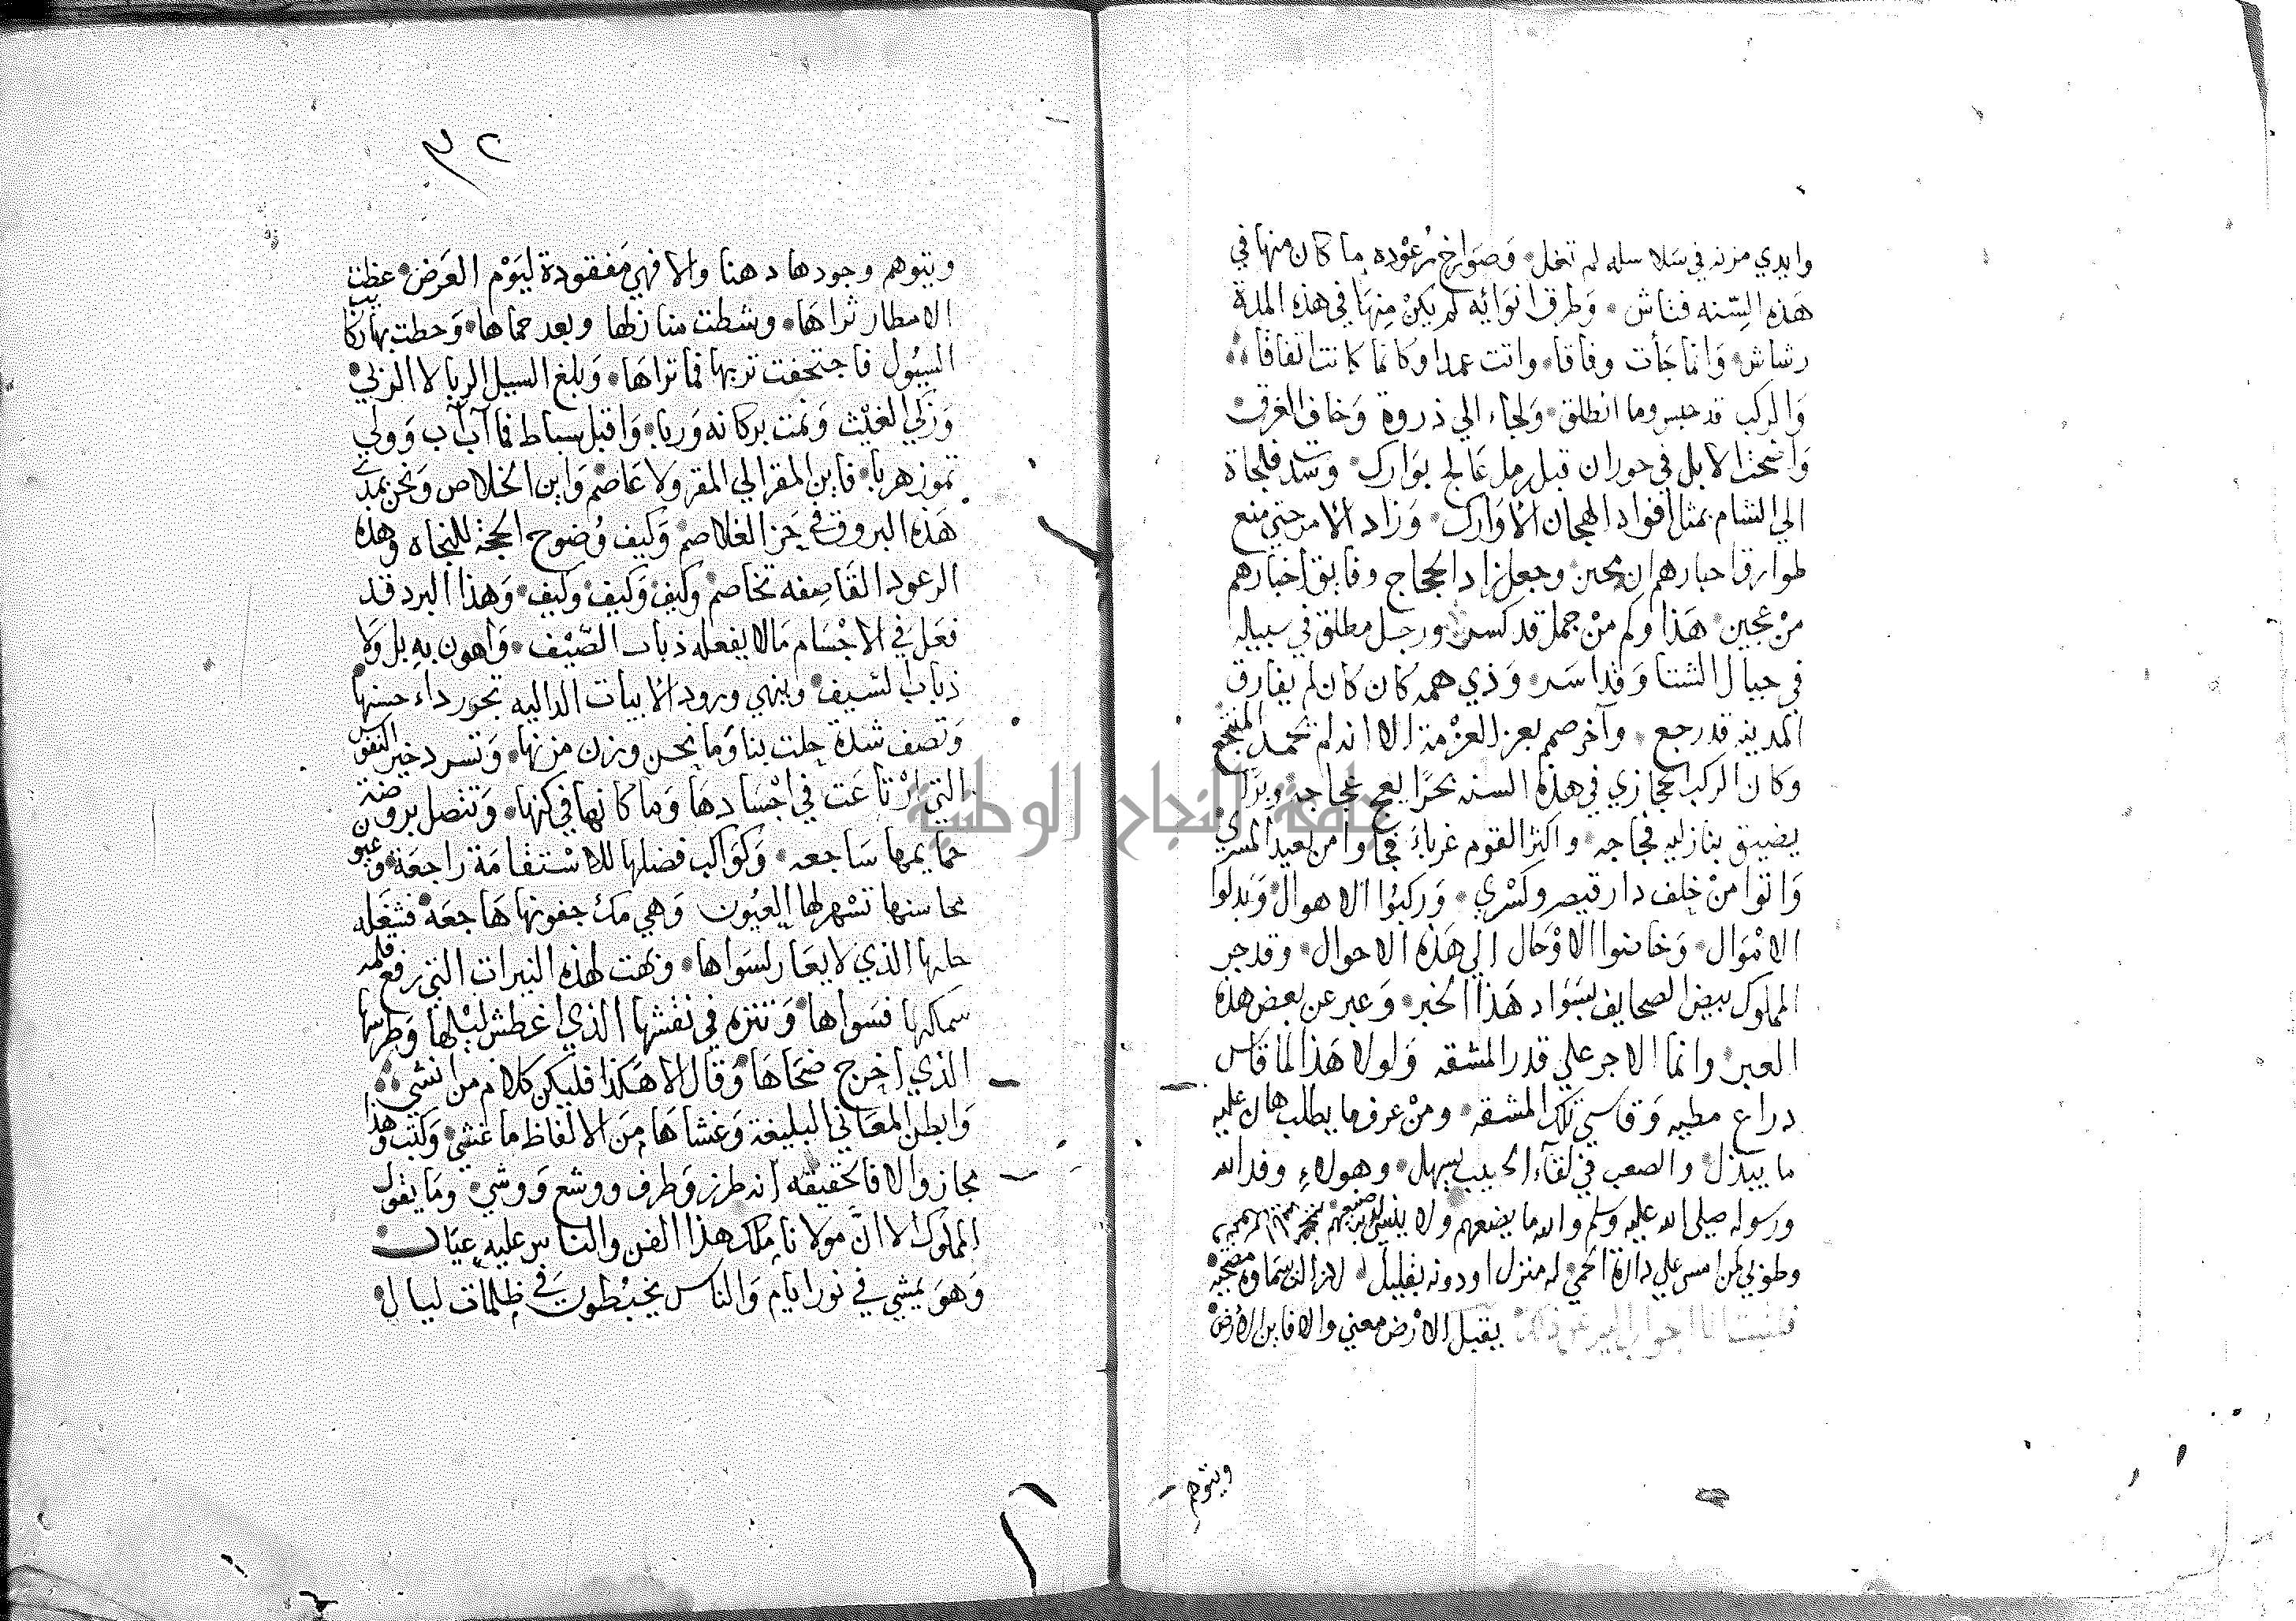 وايدي مزنه في سلاسله لم تخل وصوارخ رعوده ما كان منها في
هذه السنه فتاش وطرق انوائه لم يكن منها في هذه المدة
رشاش وانما جأت وفاقا واتت عمدا وكانما كانت اتفاقا
والركب قد حبس وما انطلق ولجاء الي ذروة وخاف الغرق
واضحت الابل في حوران قبل رمل عالج بوارك وشد فلجاة
الي الشام بمثل افواد الهجان الاوارك وزاد الامر حتي منع
طوارق اخبارهم ان يحين وجعل زاد الحجاج وفايق اخبارهم
من عجين هذا وكم من جمل قد كسر ورجل مطلق في سبيله
في حبال الشتا وقد اسر وذي همه كان كان لم يفارق
المدينه قد رجع وآخر صمم بعز العزمة الا انه لم تحمد المنتجع
وكان الركب الحجازي في هذه السنه بحرا يعج عجاجه وبرا
يضيق بنازليه فجاجه واكثر القوم غرباء فجاوا من بعيد المسري
واتوا من خلف دار قيصر وكسري وركبوا الاهوال وبدلوا
الاموال وخاضوا الاوحال الي هذه الاحوال وقد جر
المملوك بيض الصحايف بسواد هذا الخبر وعبر عن بعض هذه
العبر وانما الاجر علي قدر المشقه ولولا هذا لما قاس
دراع مطيه وقاسي تلك المشقه ومن عرف ما يطلب هان عليه
ما يبذل والصعب في لقآء الحبيب يسهل وهولاء وفد الله
ورسوله صلي الله عليه وسلم والله ما يضيعهم ولا ينسي لهم صنيعهم
وطوبي لمن امسي علي دارة الحمي له منزل او دونه بمقيل لا زالت سماوه
يقبل الارض معني والا فاين الارض
ويتوهم
٣٢
ويتوهم وجودها دهنا والا فهي مفقودة ليوم العرض غطت
الامطار ثراها وشطت منازلها وبعد حماها وحطت بها ركايب
السيول فاجتحفت تربها فما تراها وبلغ السيل الربا لا الزبي
وزكي الغيث ونمت بركاته وربا واقبل سباط فما آب آب وولي
تموز هربا فاين المقر الي المقر ولا عاصم واين الخلاص ونحن بمدي
هذه البروق في حز الغلاصم وكيف وضوح الحجة للنجاه وهذه
الرعود القاصفه تخاصم وكيف وكيف وكيف وهذا البرد قد
فعل في الاجسام مالا يفعله ذباب الصيف واهون به بل ولا
ذباب لسيف وينهي ورود الابيات الداليه تحور داء حسنها
وتصف شدة حلت بنا وما نحن وزن مزنها وتسرد خبر النفوس
التي ارتاعت في اجسادها وما كانها في كنها وتتصل بروضة
حمايمها ساجعه وكواكب فضلها للاستقامة راجعة وعيون
محاسنها تسهر لها العيون وهي مل جفونها هاجعة فشغله
حلها الذي لا يعار لسواها وبهت لهذه النيرات التي رفع قلمه
سمكها فسواها وتنزه في نقشها الذي اغطش ليلها وطرسها
الذي اخرج ضحاها وقال الا هكذا فليكن كلام من انشي
وابطن المعاني البليغة وغشاها من الالفاظ ما غشي وكتب وهذا
مجاز والا فالحقيقه انه طرز وطرف ووشع ووشي وما يقول
المملوك الا ان مولانا ملك هذا الفن والناس عليه عيال
وهو يمشي في نور ايام والناس يخبطون في ظلمات ليال
جامعة النجاح الوطنية